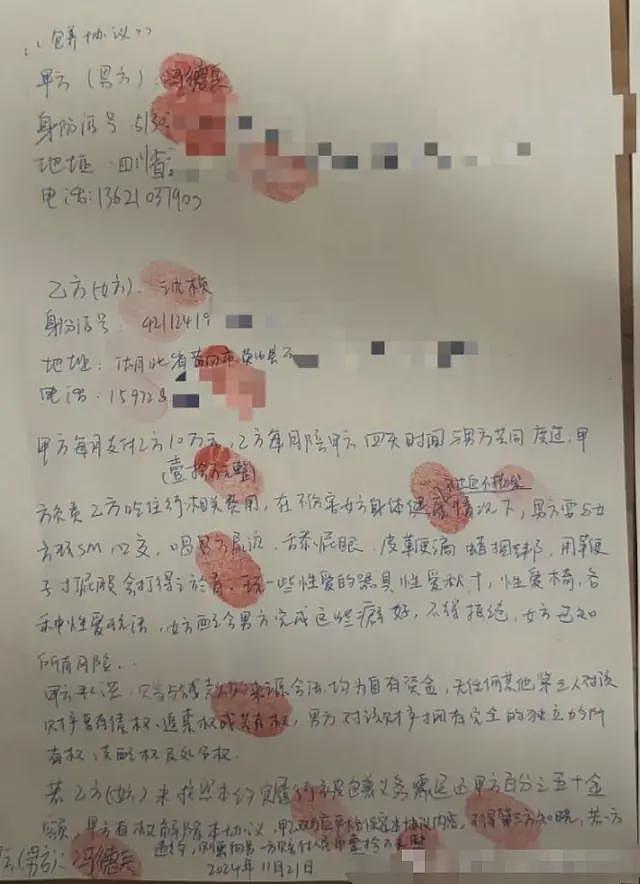 "包养协议"
甲方(男方):冯德兵
身份证号:5130
地址:四川省
电话:13621037903
乙方(女方):沈
身份证号:42112419
地址:湖北省黄冈市英山县
电话:15972
甲方每月支付乙方10万元,乙方每月陪甲方四天时间与男方共同度过,甲
(壹拾万元整)
方负责乙方吃住行相关费用,在不伤害女方身体健康情况下,男方要与女
方玩SM,口交,喝男方尿液,舔屁眼,皮鞭滴蜡捆绑,用鞭
子打屁股会打得,玩一些性爱的器具性爱秋千,性爱椅,各
种性爱玩法,女方配合男方完成这些癖好,不得拒绝,女方已知
所有风险..
甲方承诺,来源合法,均为自有资金,无任何其他第三人对该
财产享有债权、追索权或共有权,男方对该财产拥有完全的独立的所
有权、支配权及处分权.
若乙方(女方)未按照本约定履行被包养义务需退还甲方百分之五十金
额,甲方有权解除本协议,甲乙双方应严格保密本协议内容,不得第三方知晓,若一方
违约,则需向另一方赔付人民币壹拾万元
(男方):冯德兵
2024年11月21日